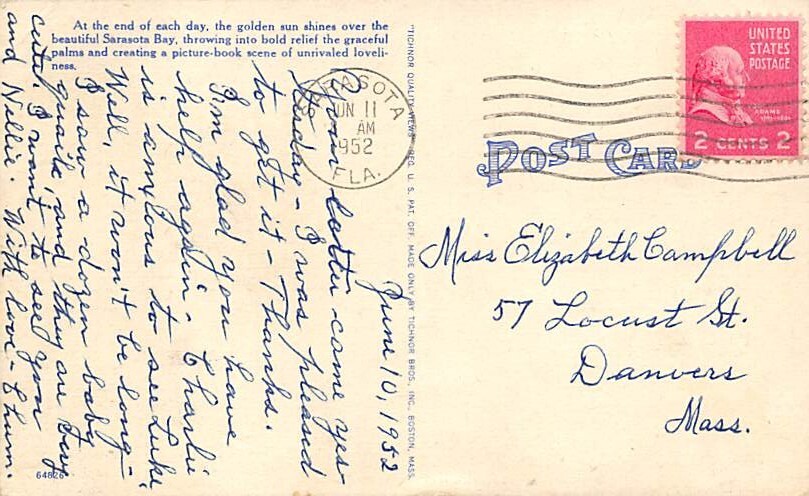 At the end of each day, the golden sun shines over the
beautiful Sarasota Bay, throwing into bold relief the graceful
palms and creating a picture-book scene of unrivaled loveli-
ness.
SARASOTA
JUN 11
AM
1952
FLA.
UNITED
STATES
POSTAGE
2 CENTS 2
POST CARD
Miss Elizabeth Campbell
57 Locust St.
Danvers
Mass.
June 10, 1952
Your letter came yes-
terday - I was pleased
to get it - Thanks.
I'm glad you have
help again - Charlie
is anxious to see Luke.
Well, it won't be long -
I saw a dozen baby
quails, and they are very
cute. I want to see you
and Nellie. With love - Chum.
"TICHNOR QUALITY VIEWS" REG. U. S. PAT. OFF. MADE ONLY BY TICHNOR BROS., INC., BOSTON, MASS.
64826